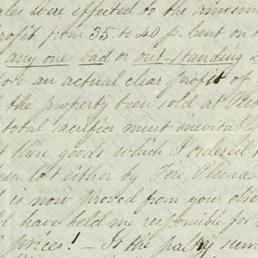 ales were effected to the
profit from 35 to 40 p. cent on
any one bad or out-standing
an actual clear profit of
the property been sold at
total sacrifice must inevitabl
then goods which I ordered
lost either by Fire,
is now proved from your
have held me responsible for
prices! – Is the paltry sum